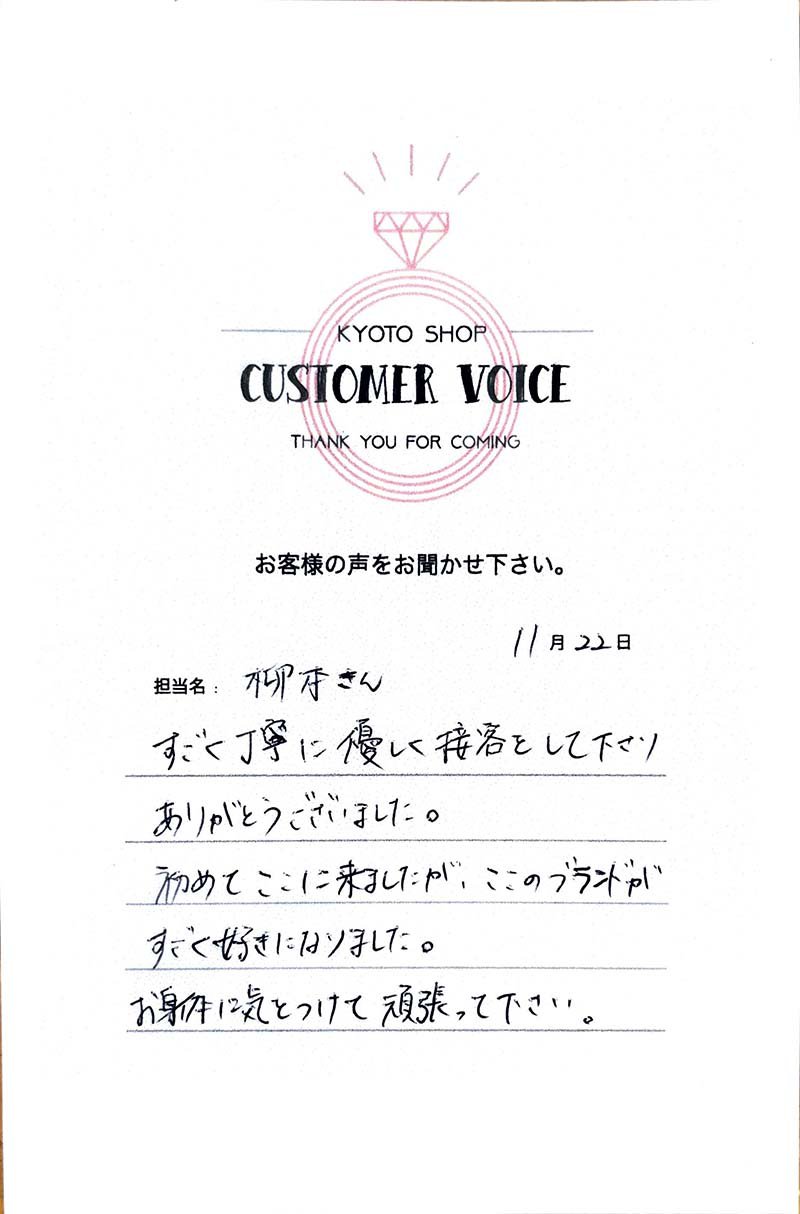 KYOTO SHOP
CUSTOMER VOICE
THANK YOU FOR COMING
お客様の声をお聞かせ下さい。
11月22日
担当名: 柳本さん
すごく丁寧に優しく接客をして下さり
ありがとうございました。
初めてここに来ましたが、ここのブランドが
すごく好きになりました。
お身体に気をつけて頑張って下さい。